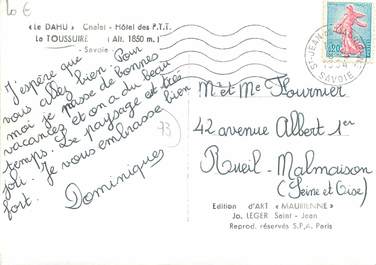 Lo €
« Le DAHU » Chalet - Hôtel des P.T.T.
La TOUSSUIRE (Alt. 1850 m.)
- Savoie -
J'espère que
vous allez bien. Pour
moi je passe de bonnes
vacances et on a du beau
temps. Le paysage est très
joli. Je vous embrasse bien
fort.
Dominique
73
M et Me Fournier
42 avenue Albert 1er
Rueil - Malmaison
(Seine et Oise)
Edition d'ART « MAURIENNE »
Jo. LEGER Saint - Jean
Reprod. réservés S.P.A. Paris
SAVOIE